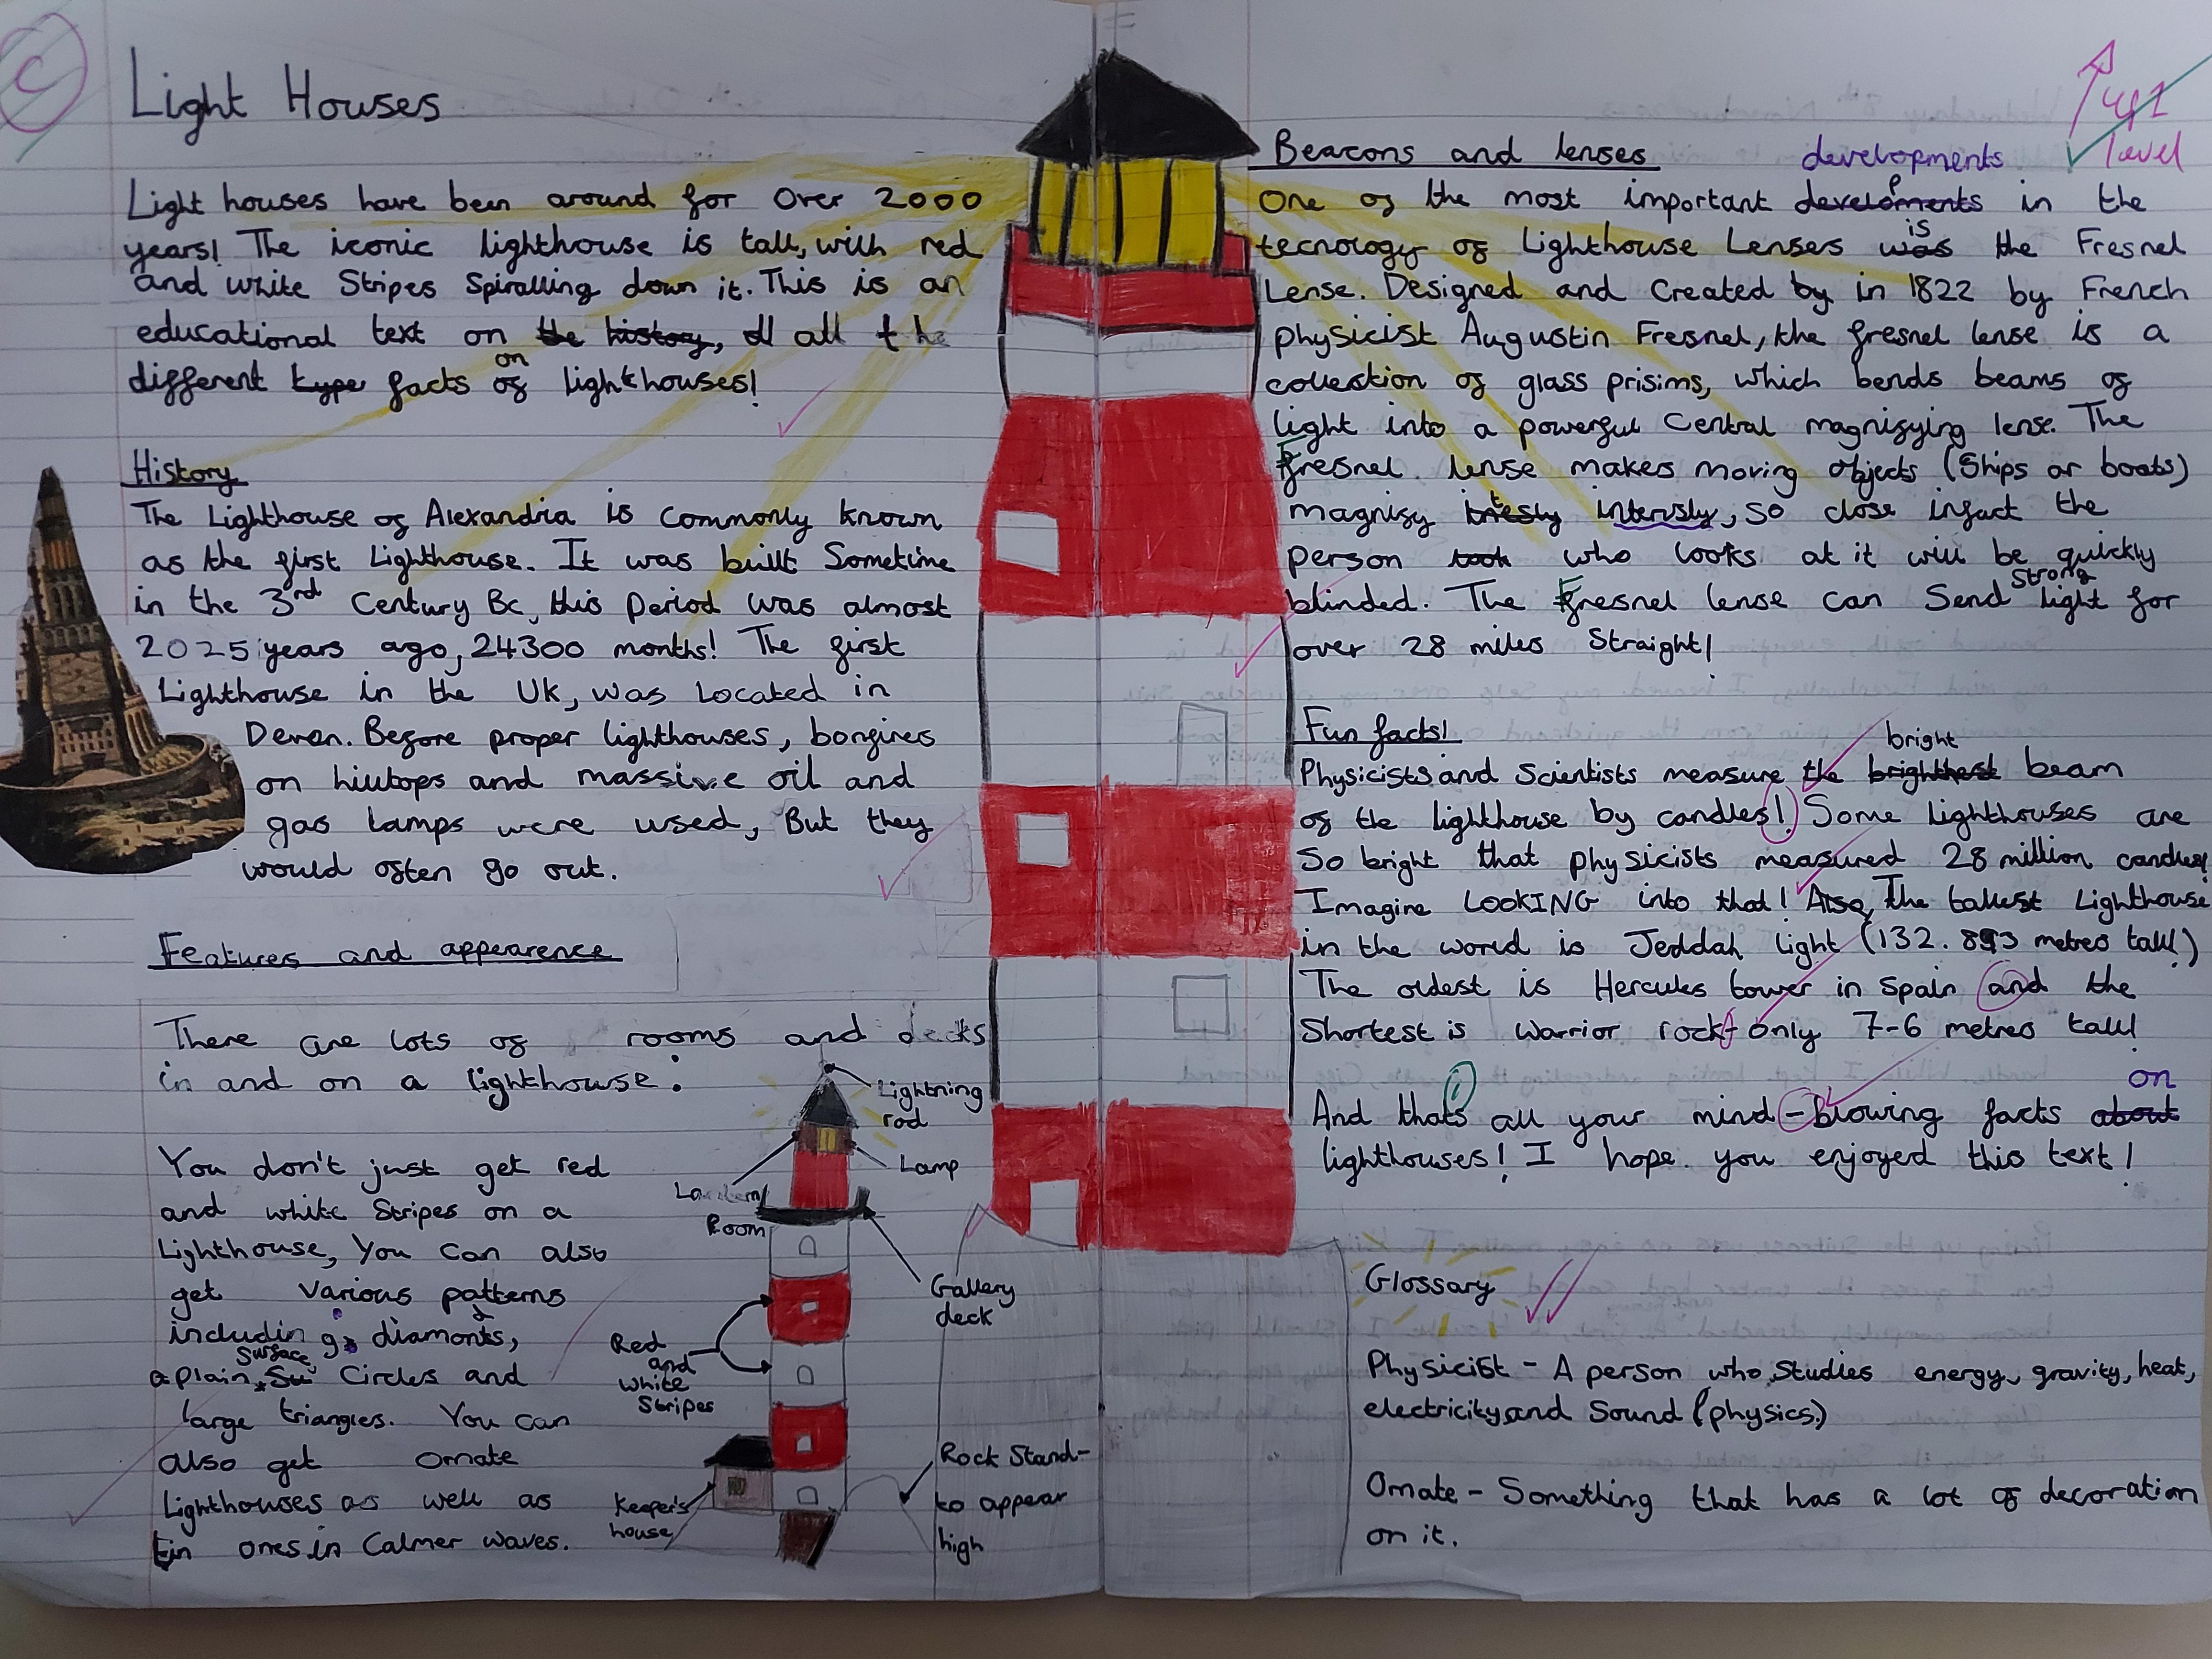 C
Light Houses
Light houses have been around for over 2000
years! The iconic lighthouse is tall, with red
and white Stripes Spiralling down it. This is an
educational text on the history, all all the
different type facts of on lighthouses!
History
The Lighthouse of Alexandria is commonly known
as the first Lighthouse. It was built Sometime
in the 3rd Century Bc, this period was almost
2025 years ago, 24300 months! The first
Lighthouse in the Uk, was Located in
Devon. Before proper lighthouses, bonfires
on hilltops and massive oil and
gas lamps were used, But they
would often go out.
Features and appearence
There are lots of rooms and decks
in and on a lighthouse:
You don't just get red
and white Stripes on a
Lighthouse, You can also
get various patterns
including: diamonds,
a plain surface, Circles and
large triangles. You can
also get ornate
Lighthouses as well as
tin ones in Calmer waves.
Lightning
rod
Lamp
Lantern
Room
Gallery
deck
Red
and
white
Stripes
Keeper's
house
Rock Stand-
to appear
high
up 1
level
Beacons and lenses
developments
One of the most important develoments in the
tecnology of Lighthouse Lenses was is the Fresnel
Lense. Designed and created by in 1822 by French
physicist Augustin Fresnel, the fresnel lense is a
collection of glass prisims, which bends beams of
light into a powerful Central magnifying lense. The
Fresnel lense makes moving objects (Ships or boats)
magnify intesly intensly, so close infact the
person look who looks at it will be quickly
blinded. The Fresnel lense can Send strong light for
over 28 miles Straight!
Fun facts!
Physicists and Scientists measure the brighthest bright beam
of the lighthouse by candles! Some lighthouses are
So bright that physicists measured 28 million candles!
Imagine LOOKING into that! Also, The tallest Lighthouse
in the world is Jeddah light (132.893 metres tall!)
The oldest is Hercules tower in Spain and the
Shortest is Warrior rock- only 7-6 metres tall!
And thats all your mind-blowing facts about on
lighthouses! I hope you enjoyed this text!
Glossary
Physicist - A person who Studies energy, gravity, heat,
electricity and Sound (physics.)
Ornate - Something that has a lot of decoration
on it.